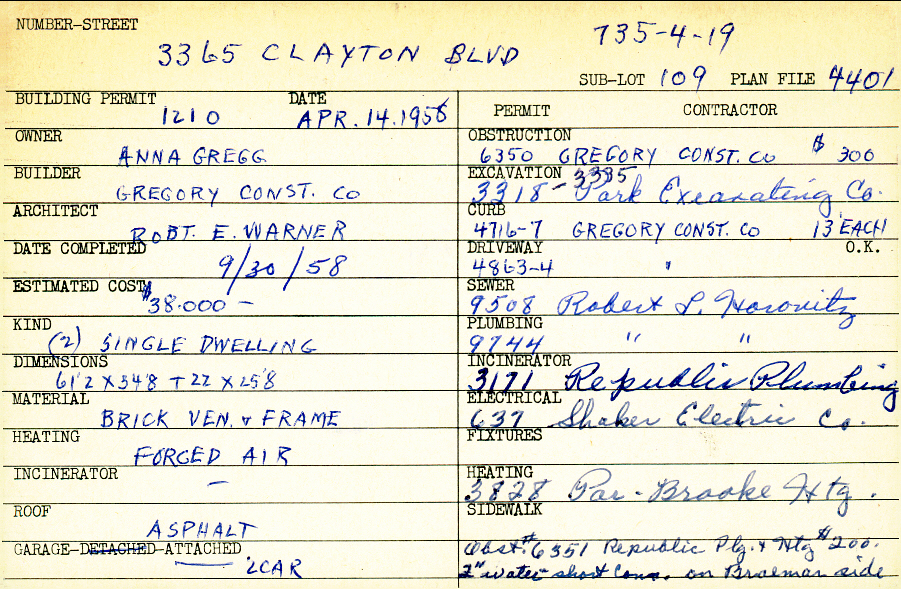 NUMBER-STREET
3365 CLAYTON BLVD
735-4-19
SUB-LOT 109 PLAN FILE 4401
BUILDING PERMIT 1210 DATE APR. 14. 1958
OWNER
ANNA GREGG
BUILDER
GREGORY CONST. CO
ARCHITECT
ROBT. E. WARNER
DATE COMPLETED
9/30/58
ESTIMATED COST
$38.000 —
KIND
(2) SINGLE DWELLING
DIMENSIONS
61'2 X 34'8 + 22 X 25'8
MATERIAL
BRICK VEN. & FRAME
HEATING
FORCED AIR
INCINERATOR
—
ROOF
ASPHALT
GARAGE-DETACHED-ATTACHED
2CAR
PERMIT CONTRACTOR
OBSTRUCTION
6350 GREGORY CONST. CO $ 300
EXCAVATION
3318-3335 Park Excavating Co.
CURB
4716-7 GREGORY CONST. CO 13' EACH
DRIVEWAY O.K.
4863-4 "
SEWER
9508 Robert L. Horovitz
PLUMBING
9744 " "
INCINERATOR
3171 Republic Plumbing
ELECTRICAL
637 Shaker Electric Co.
FIXTURES
HEATING
3828 Par-Brooke Htg.
SIDEWALK
Obst. #6351 Republic Plg. & Htg $200.
2" water short Conn. on Braemar side